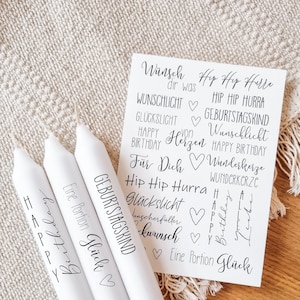 Wünsch dir was
Hip Hip Hurra
WUNSCHLICHT
HIP HIP HURRA
GLÜCKSLICHT
GEBURTSTAGSKIND
HAPPY BIRTHDAY
von Herzen
Wunschlicht
HAPPY BIRTHDAY
Für Dich
Wunderkerze
WUNDERKERZE
Hip Hip Hurra
Glückslicht
Happy Birthday
Eine Portion Glück
HAPPY
Birthday
Eine Portion
Glück
GEBURTSTAGSKIND